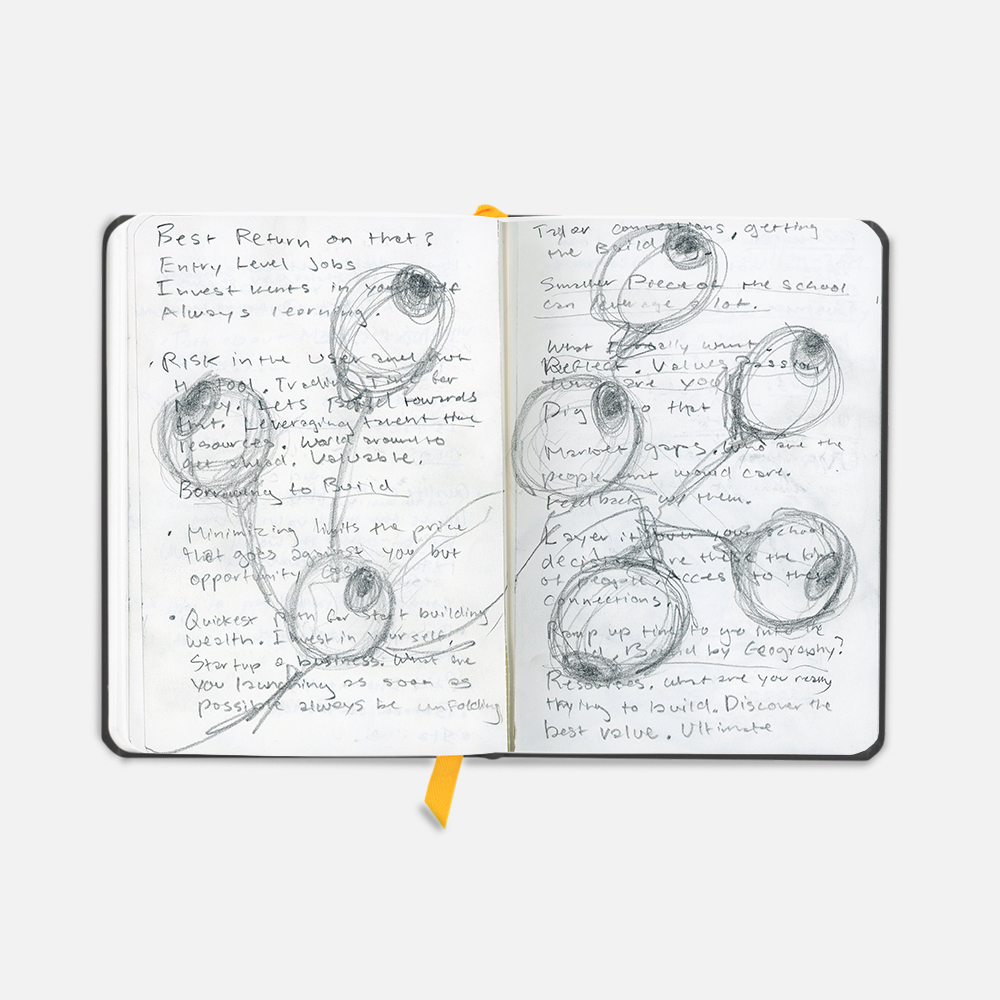 Best Return on that?
Entry Level Jobs
Investments in yourself
Always learning.
• Risk in the user and own
the tool. Trading Time for
Money. Lets Build towards
that. Leveraging talent time
resources. World around to
get ahead. Valuable.
Borrowing to Build
• Minimizing limits the price
that goes against you but
opportunity cost
• Quickest path for start building
wealth. Invest in yourself.
Startup a business. What are
you launching as soon as
possible always be unfolding
Tailor connections, getting
the Build
Smaller Piece of the school
can leverage a lot.
What I really want.
Reflect. Values Passion
who are you
Dig into that
Market gaps. Who are the
people that would care.
Feedback w/ them.
Layer it over your school
decision. Are these the kind
of people. Access to these
connections.
Ramp up time to go into
Bound by Geography?
Resources. what are you really
trying to build. Discover the
best value. Ultimate